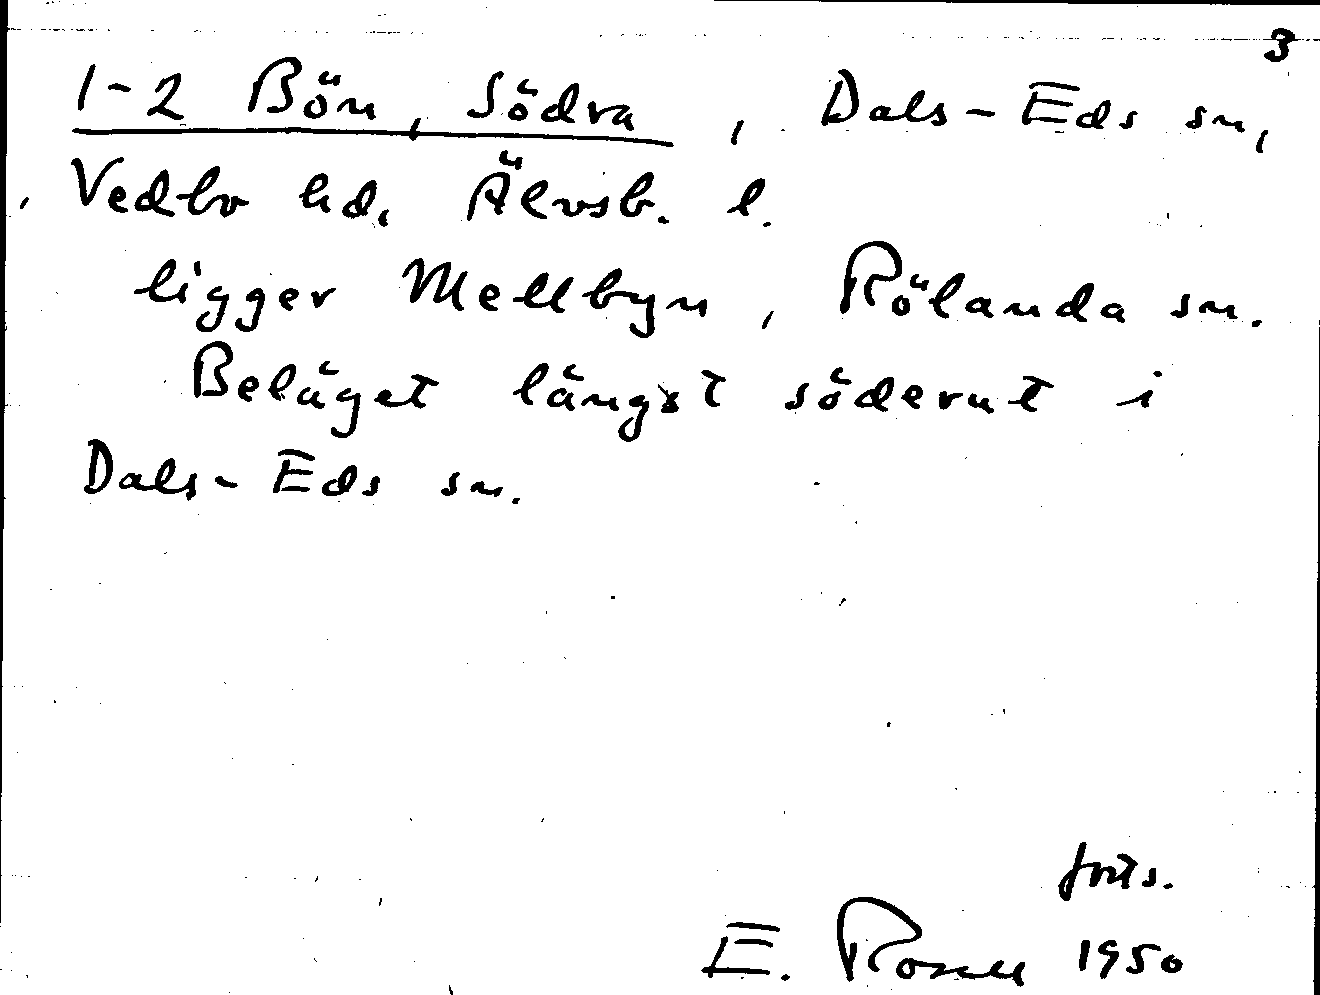 3
1-2 Bön, Södra, Dals-Eds sn,
Vedbo hd, Älvsb. l.
ligger Mellbyn, Rölanda sn.
Beläget längst söderut i
Dals-Eds sn.
forts.
E. Rosell 1950